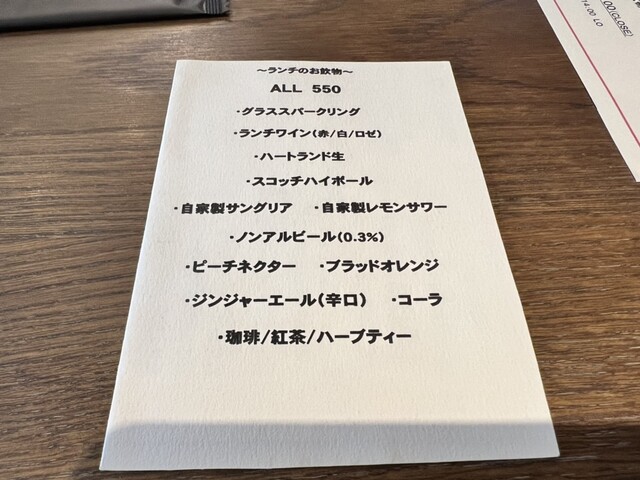 ～ランチのお飲物～
ALL 550
・グラススパークリング
・ランチワイン(赤/白/ロゼ)
・ハートランド生
・スコッチハイボール
・自家製サングリア ・自家製レモンサワー
・ノンアルビール(0.3%)
・ピーチネクター ・ブラッドオレンジ
・ジンジャーエール(辛口) ・コーラ
・珈琲/紅茶/ハーブティー
:00(CLOSE)
14:00 LO